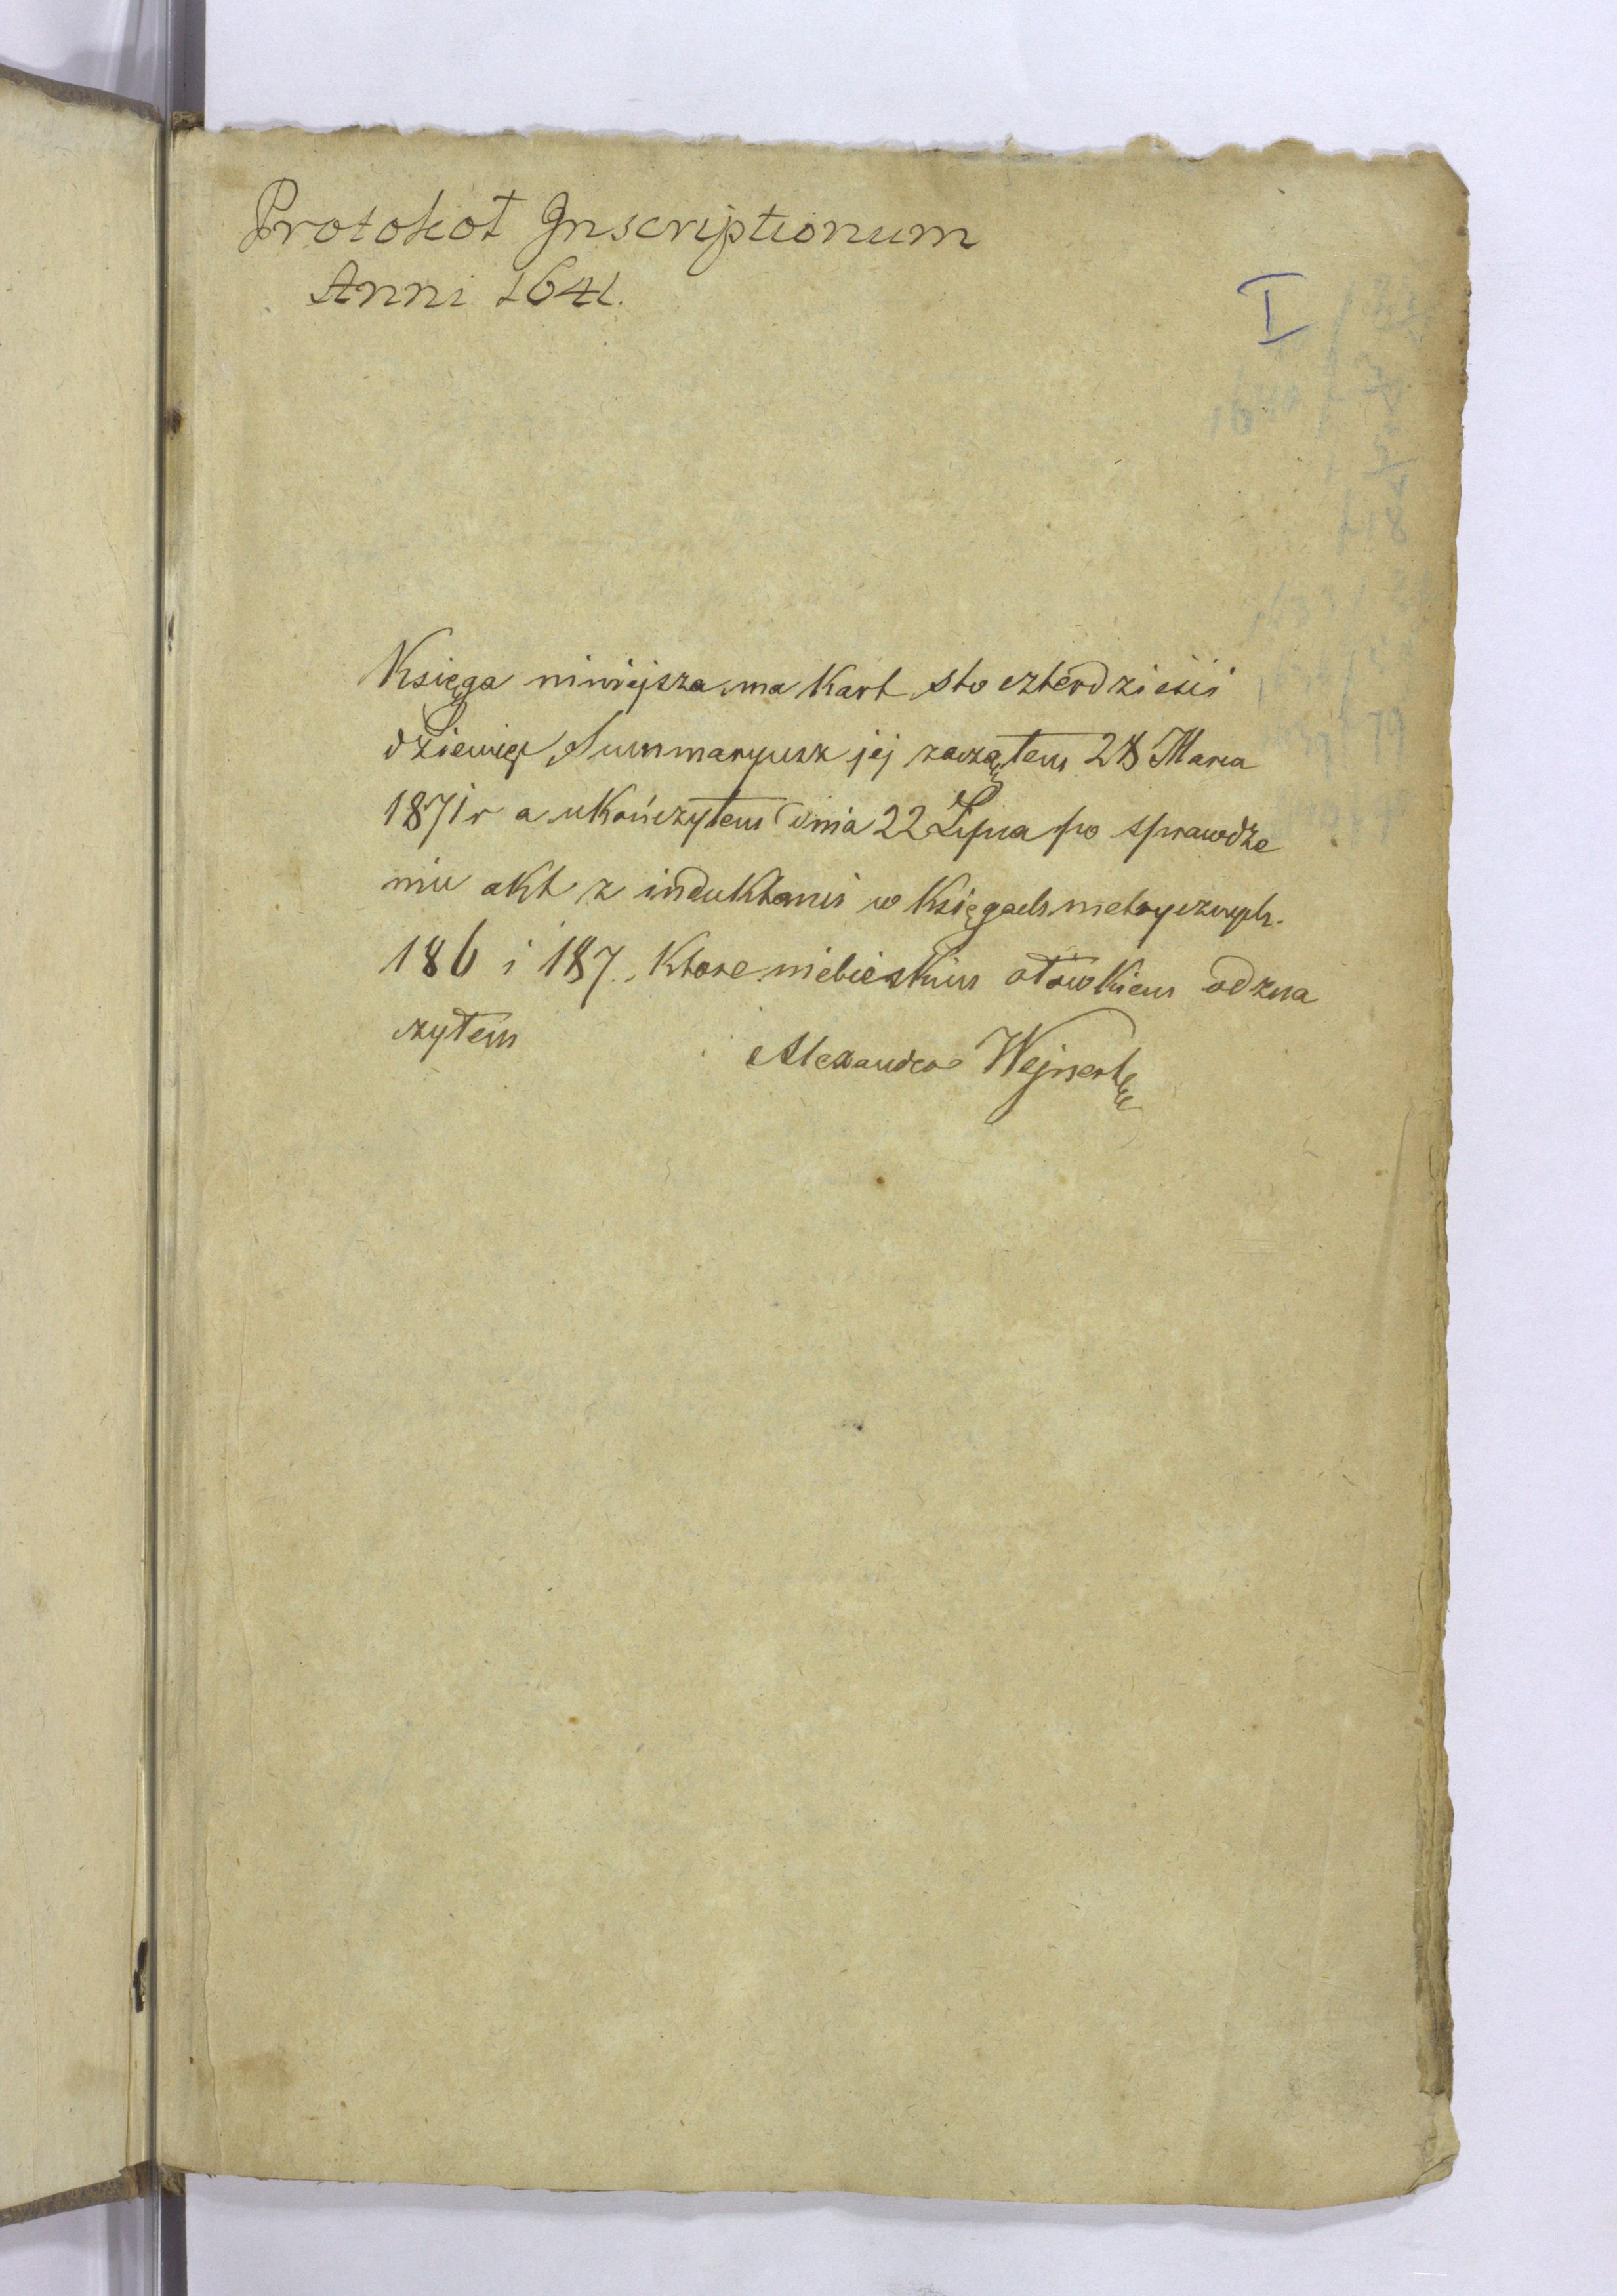 Protokoł Inscriptionum
Anni 1641.
I
Księga niniejsza ma kart sto czterdzieści
dziewięć Summaryusz jej zacząłem 28 Marca
1871 r a ukończyłem dnia 22 Lipca po sprawdze
niu akt z induktami w księgach metrycznych.
186 i 187. które niebieskim ołówkiem odzna
czyłem
Alexander Wejnert